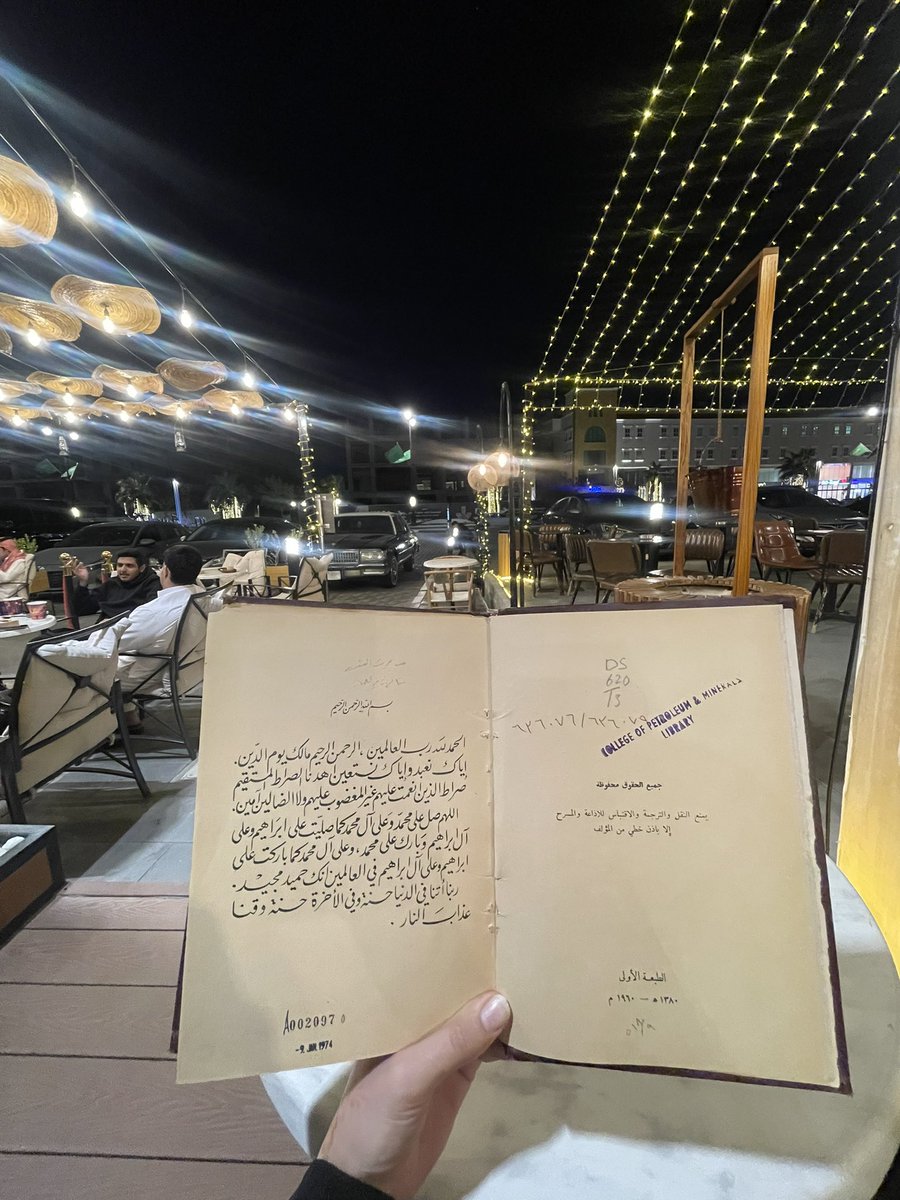 بسم الله الرحمن الرحيم
الحمد لله رب العالمين . الرحمن الرحيم مالك يوم الدّين .
اياك نعبد واياك نستعين اهدنا الصراط المستقيم
صراط الذين انعمت عليهم غير المغضوب عليهم ولا الضالين آمين .
اللهم صل على محمد وعلى آل محمد كما صليت على ابراهيم وعلى
آل ابراهيم وبارك على محمد ، وعلى آل محمد كما باركت على
ابراهيم وعلى آل ابراهيم في العالمين انك حميد مجيد .
ربنا آتنا في الدنيا حسنة وفي الآخرة حسنة وقنا
عذاب النار .
A002097 0
-9. JUN. 1974
DS
620
T3
٦٢٦٠٧٦/٦٢٦٠٧٥
COLLEGE OF PETROLEUM & MINERALS
LIBRARY
جميع الحقوق محفوظة
يمنع النقل والترجمة والاقتباس للاذاعة والمسرح
إلا باذن خطي من المؤلف
الطبعة الأولى
١٣٨٠ هـ — ١٩٦٠ م